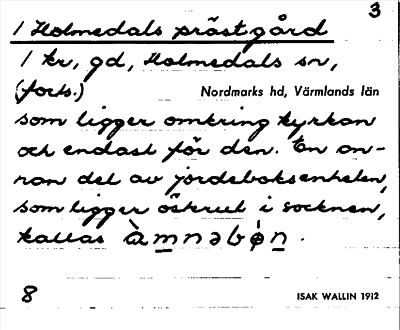 3
1 Holmedals prästgård
1 kr, gd, Holmedals sn,
(forts.) Nordmarks hd, Värmlands län
som ligger omkring kyrkan
och endast för den. En an-
nan del av jordeboksenheten,
som ligger österut i socknen,
kallas
8 ISAK WALLIN 1912